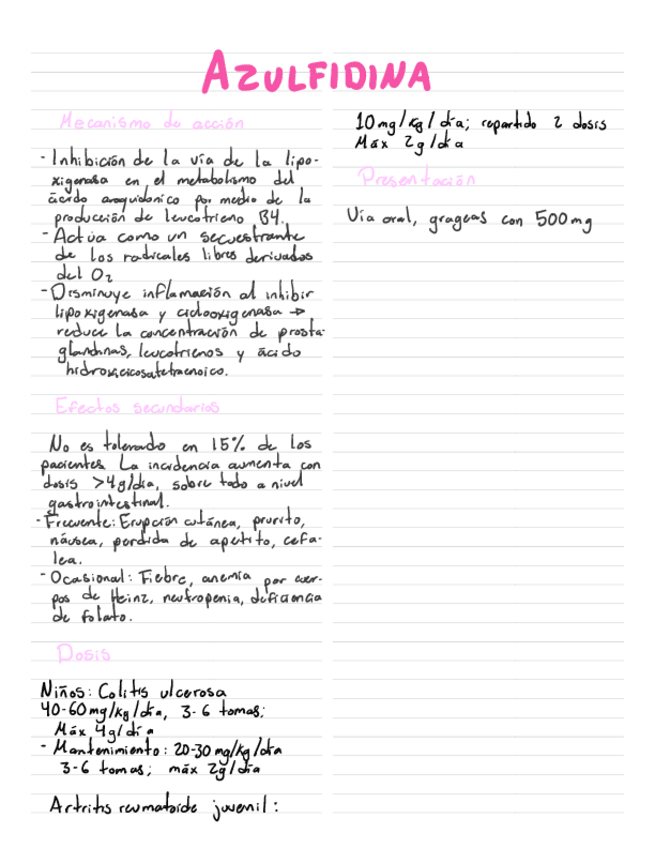 AZULFIDINA
Mecanismo de acción
- Inhibición de la vía de la lipo-
xigenasa en el metabolismo del
ácido araquidonico por medio de la
producción de leucotrieno B4.
- Actúa como un secuestrante
de los radicales libres derivados
del O2
- Disminuye inflamación al inhibir
lipoxigenasa y ciclooxigenasa →
reduce la concentración de prosta-
glandinas, leucotrienos y ácido
hidroxieicosatetraenoico.
Efectos secundarios
No es tolerado en 15% de los
pacientes. La incidencia aumenta con
dosis >4g/día, sobre todo a nivel
gastrointestinal.
- Frecuente: Erupción cutánea, prurito,
náusea, perdida de apetito, cefa-
lea.
- Ocasional: Fiebre, anemia por cuer-
pos de Heinz, neutropenia, deficiencia
de folato.
Dosis
Niños: Colitis ulcerosa
40-60mg/kg/día, 3-6 tomas;
Máx 4g/día
- Mantenimiento: 20-30 mg/kg/día
3-6 tomas; máx 2g/día
Artritis reumatoide juvenil:
10mg/kg/día; repartido 2 dosis
Máx 2g/día
Presentación
Vía oral, grageas con 500mg